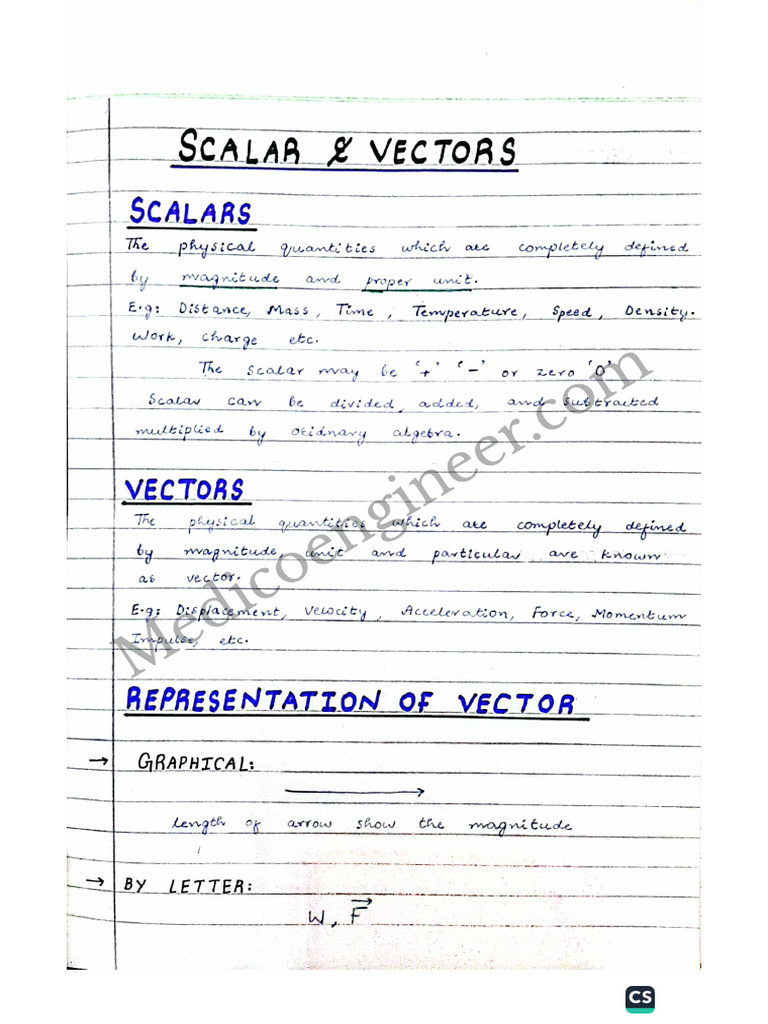 SCALAR & VECTORS
SCALARS
The physical quantities which are completely defined
by magnitude and proper unit.
E.g: Distance, Mass, Time, Temperature, Speed, Density.
Work, charge etc.
The scalar may be '+' '-' or zero '0'
Scalar can be divided, added, and subtracted
multiplied by oridnary algebra.
VECTORS
The physical quantities which are completely defined
by magnitude, unit and particular are known
as vector.
E.g: Displacement, Velocity, Acceleration, Force, Momentum
Impulse, etc.
REPRESENTATION OF VECTOR
→ GRAPHICAL:
length of arrow show the magnitude
→ BY LETTER:
W, F⃗
Medicoengineer.com
CS